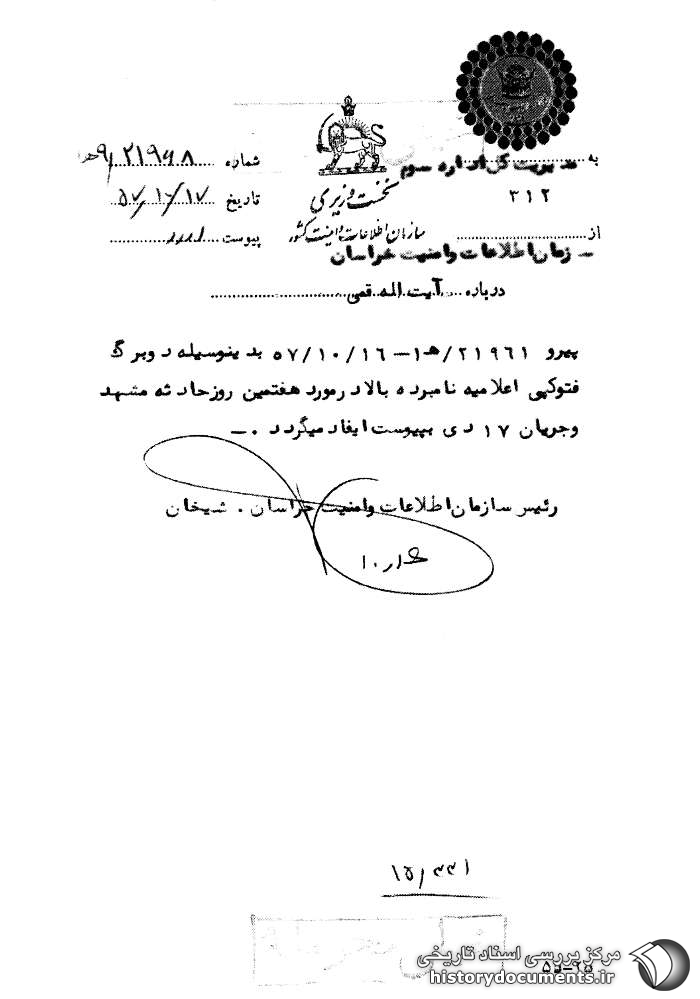 به مدیریت کل اداره سوم
۳۱۲
از سازمان اطلاعات و امنیت خراسان
درباره آیت اله قمی
نخست وزیری
سازمان اطلاعات و امنیت کشور
شماره ۲۱۹۶۸
تاریخ ۵۷/۱۰/۱۷
پیوست
پیرو ۲۱۹۶۱/هـ۱-۵۷/۱۰/۱۶ بدینوسیله دو برگ
فتوکپی اعلامیه نامبرده بالا در مورد هفتمین روز حادثه مشهد
و جریان ۱۷ دی بپیوست ایفاد میگردد .-
رئیس سازمان اطلاعات و امنیت خراسان . شیخان
مرکز بررسی اسناد تاریخی
historydocuments.ir